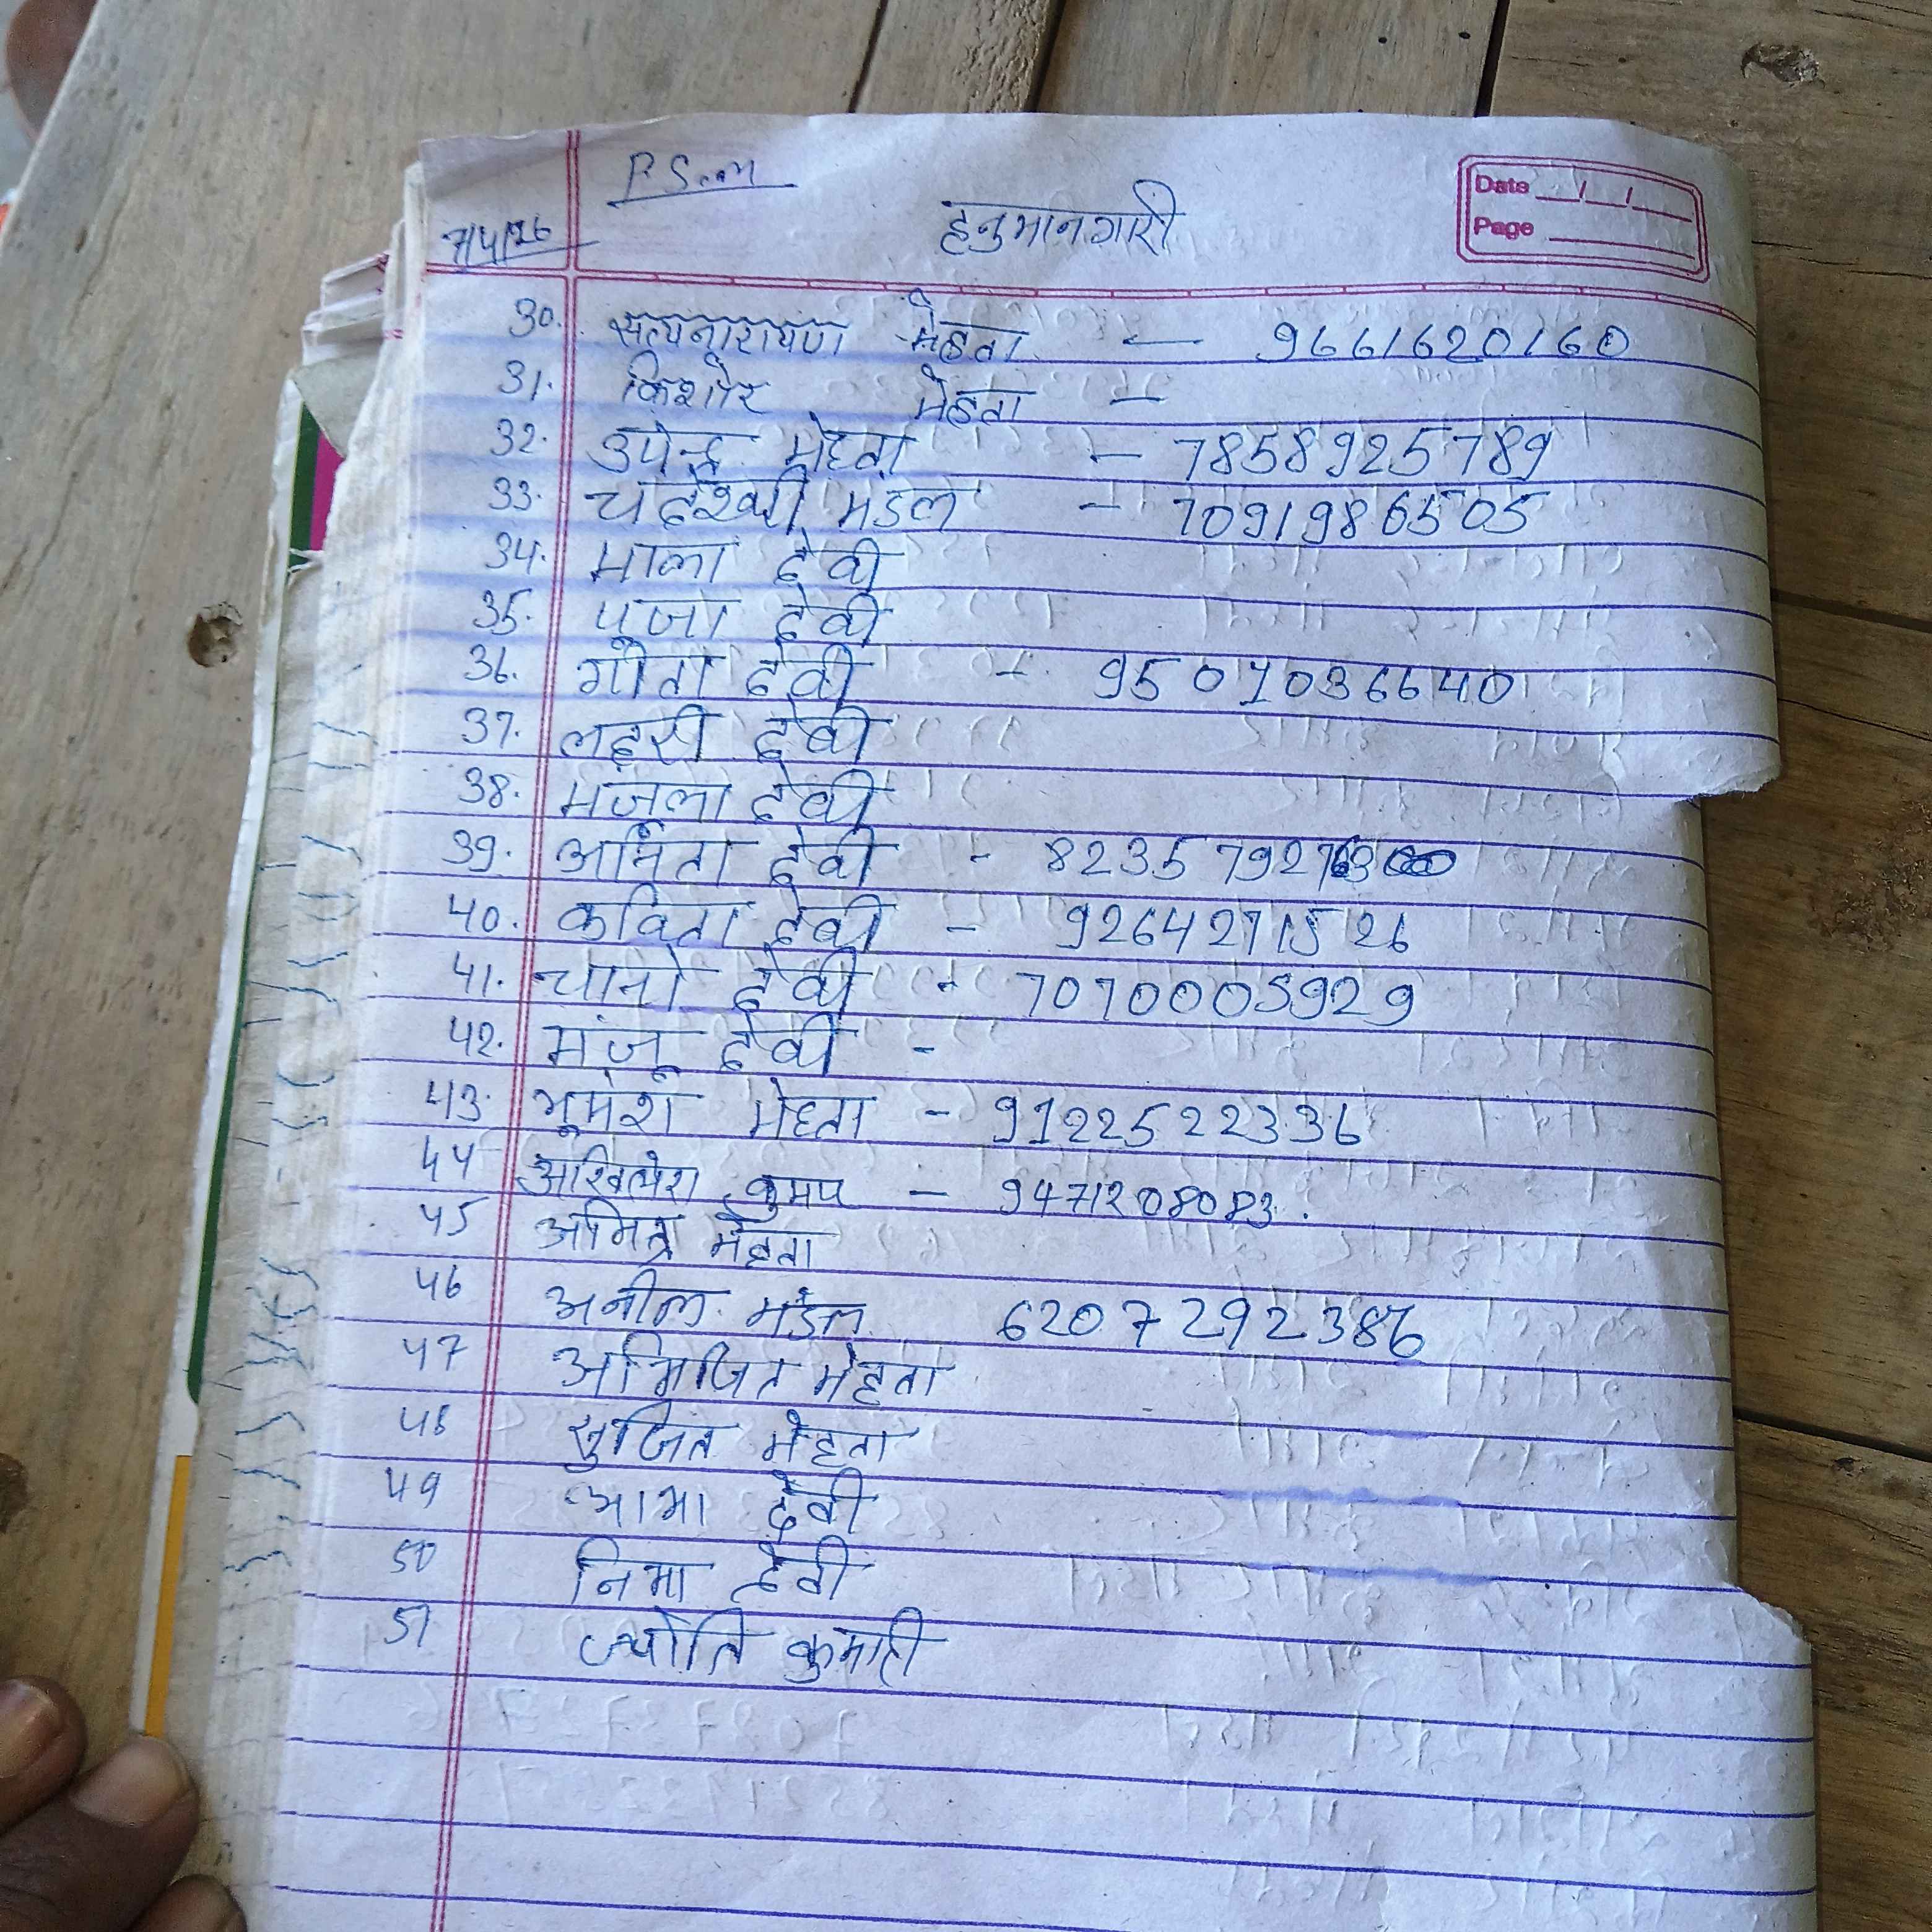 P.S.M
Date __/__/__
Page
7/4/26
हनुमानगारी
30. सत्यनारायण मेहता — 9661620160
31. किशोर मेहता —
32. उपेन्द्र मेहता — 7858925789
33. चंदेश्वरी मंडल — 7091986505
34. माला देवी
35. पूजा देवी
36. गीता देवी - 9507036640
37. लहरी देवी
38. मंजुला देवी
39. अमिता देवी - 8235792
40. कविता देवी - 9264271526
41. चानो देवी - 7070005929
42. मंजू देवी -
43. भूमेश मेहता - 9122522336
44 अखिलेश कुमार — 9471208083.
45 मेहता
46 अनील मंडल 6207292386
47 अभिजित मेहता
48 सुजित मेहता
49 आभा देवी
50 निभा देवी
51 ज्योति कुमारी